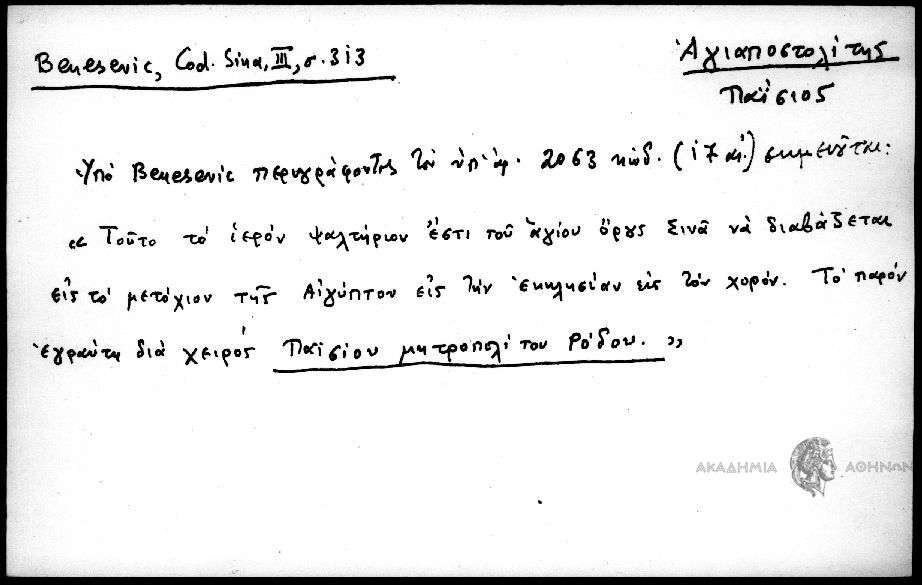 Benesevic, Cod. Sina, III, σ. 313
Ἁγιαποστολίτης
Παΐσιος
Ὑπό Benesevic περιγράφοντος τόν ὑπ' ἀρ. 2063 κώδ. (17 αἰ.) σημειοῦται:
« Τοῦτο τό ἱερόν ψαλτήριον ἔστι τοῦ ἁγίου ὄρους Σινᾶ νά διαβάζεται
εἰς τό μετόχιον τῆς Αἰγύπτου εἰς τήν ἐκκλησίαν εἰς τόν χορόν. Τό παρόν
ἐγράυτη διά χειρός Παϊσίου μητροπολίτου Ρόδου. »
ΑΚΑΔΗΜΙΑ ΑΘΗΝΩΝ